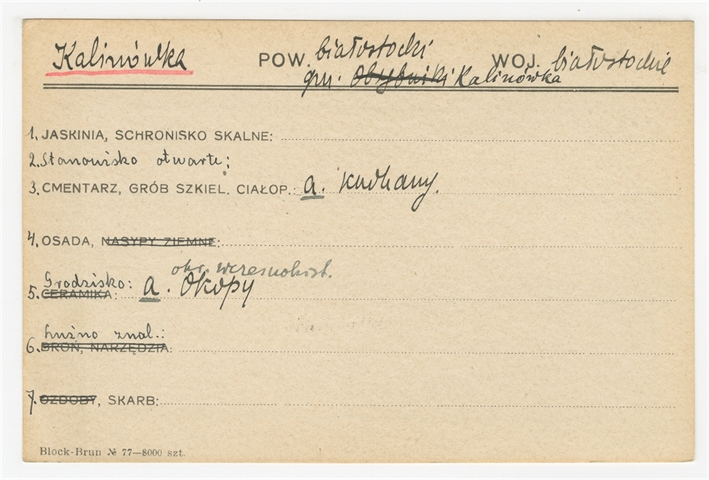 Kalinówka POW. białostocki WOJ. białostockie
gm. Kalinówka
1. JASKINIA, SCHRONISKO SKALNE:
2. Stanowisko otwarte:
3. CMENTARZ, GRÓB SZKIEL. CIAŁOP.: a. Kurhany.
4. OSADA, NASYPY ZIEMNE:
okr. wczesnohist.
Grodzisko: a. Okopy
5. CERAMIKA:
Luźno znal.:
6. BROŃ, NARZĘDZIA:
7. OZDOBY, SKARB:
Block-Brun № 77—8000 szt.